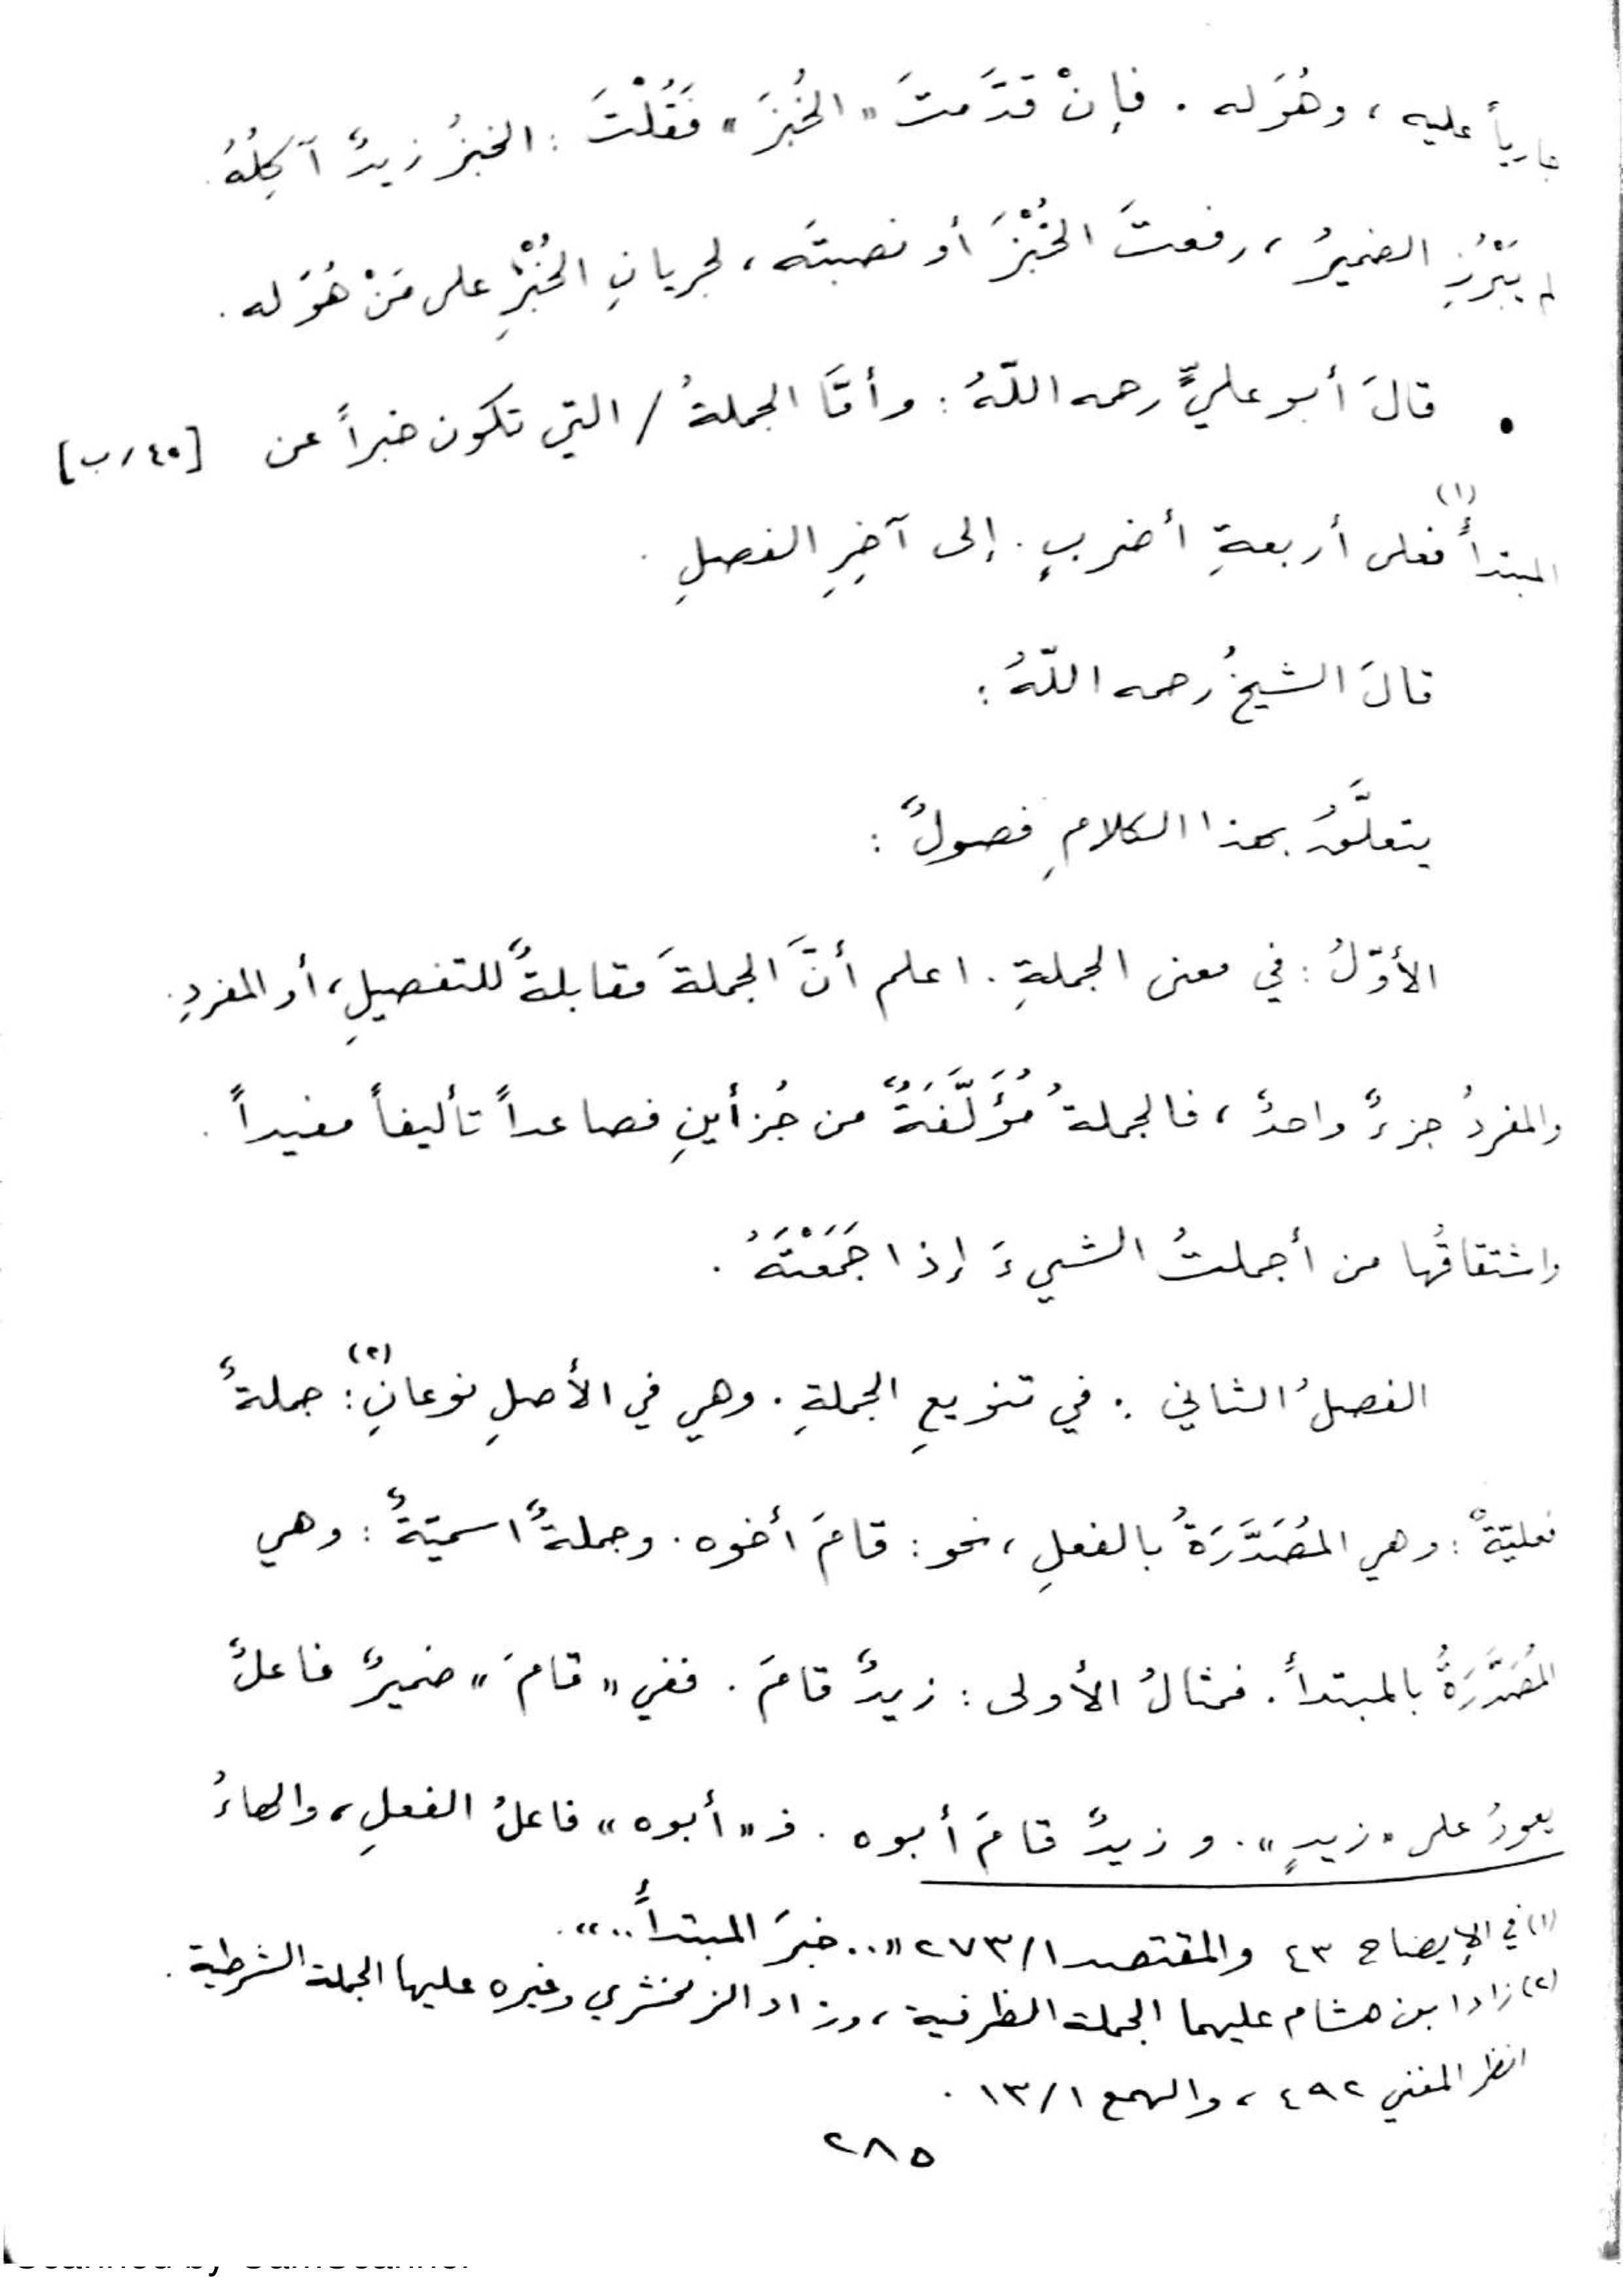 جارياً عليه ، وهُوَ له . فإنْ قدَّمتَ « الخُبزَ » فَقُلْتَ : الخبزُ زيدٌ آكِلُهُ .
لم يَبْرُزِ الضميرُ ، رفعتَ الخُبْزَ أو نصبتَه ، لجريانِ الخُبْزِ على مَنْ هُوَ له .
• قالَ أبو عليٍّ رحمه اللّهُ : وأمَّا الجملةُ / التي تكون خبراً عن [٤٠/ب]
المبتدأ (١) فعلى أربعةِ أضربٍ . إلى آخِرِ الفصلِ .
قالَ الشيخُ رحمه اللّهُ :
يتعلَّقُ بهذا الكلامِ فصولٌ :
الأوّلُ : في معنى الجملةِ . اعلم أنَّ الجملةَ مقابلةٌ للتفصيلِ ، أو المفردِ .
والمفردُ جزءٌ واحدٌ ، فالجملةُ مُؤَلَّفَةٌ من جُزأينِ فصاعداً تأليفاً مفيداً .
واشتقاقُها من أجملتُ الشيءَ إذا جَمَعْتَهُ .
الفصلُ الثاني : في تنويعِ الجملةِ . وهي في الأصلِ نوعانِ (٢) : جملةٌ
فعليّةٌ : وهي المُصَدَّرَةُ بالفعلِ ، نحو : قامَ أخوه . وجملةٌ اسميّةٌ : وهي
المُصَدَّرَةُ بالمبتدأ . فمثالُ الأولى : زيدٌ قامَ . ففي « قامَ » ضميرٌ فاعلٌ
يعودُ على « زيدٍ » . و زيدٌ قامَ أبوه . فـ « أبوه » فاعلُ الفعلِ ، والهاءُ
(١) في الإيضاح ٤٣ والمقتصد ٢٧٣/١ « .. خبرَ المبتدأ .. » .
(٢) زاد ابن هشام عليهما الجملة الظرفية ، وزاد الزمخشري وغيره عليها الجملة الشرطية .
انظر المغني ٤٩٢ ، والهمع ١٣/١ .
٢٨٥
Scanned by CamScanner